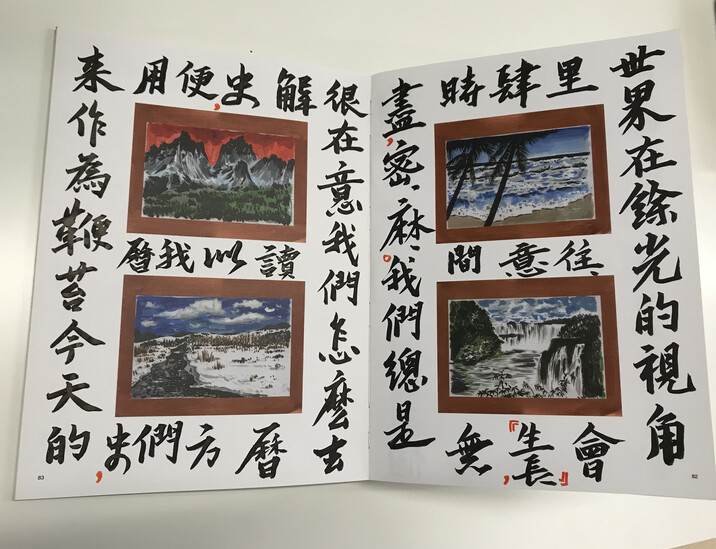 世界在餘光的視角
里往、會
肆意『生長』,
時間無
盡,密、麻、。我們總是
很在意我們怎麼去
解讀曆
史,以方
便我們
用曆史,
来作為鞭苔今天的
82
83